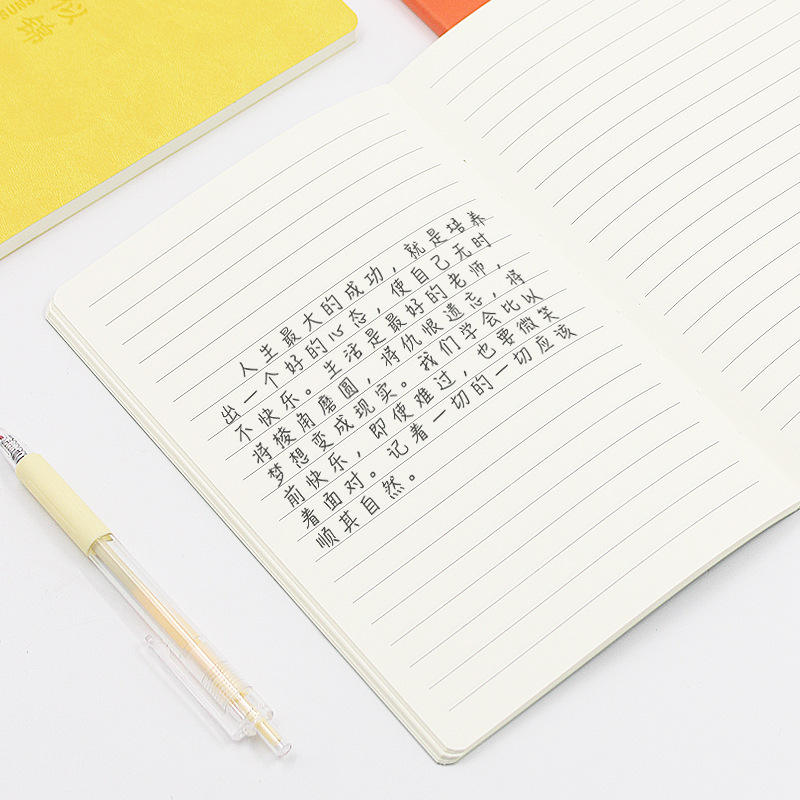 似锦
人生最大的成功，就是培养
出一个好的心态，使自己无时
不快乐。生活是最好的老师，
将棱角磨圆，将仇恨遗忘，将
梦想变成现实。我们学会比以
前快乐，即使难过，也要微笑
着面对。记着一切的一切应该
顺其自然。